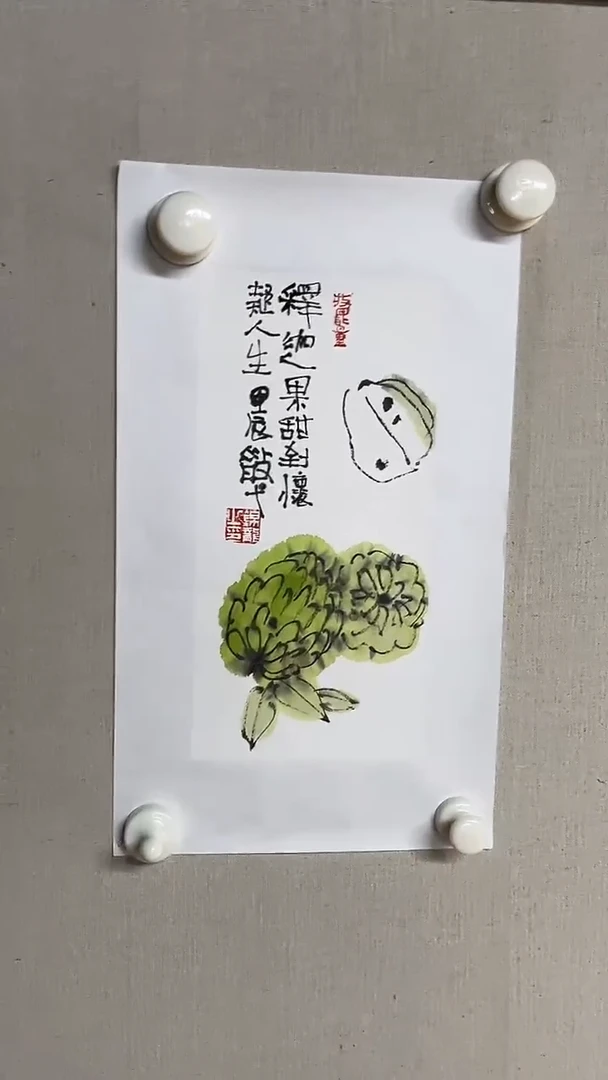 釋迦之果甜到懷
疑人生 甲辰